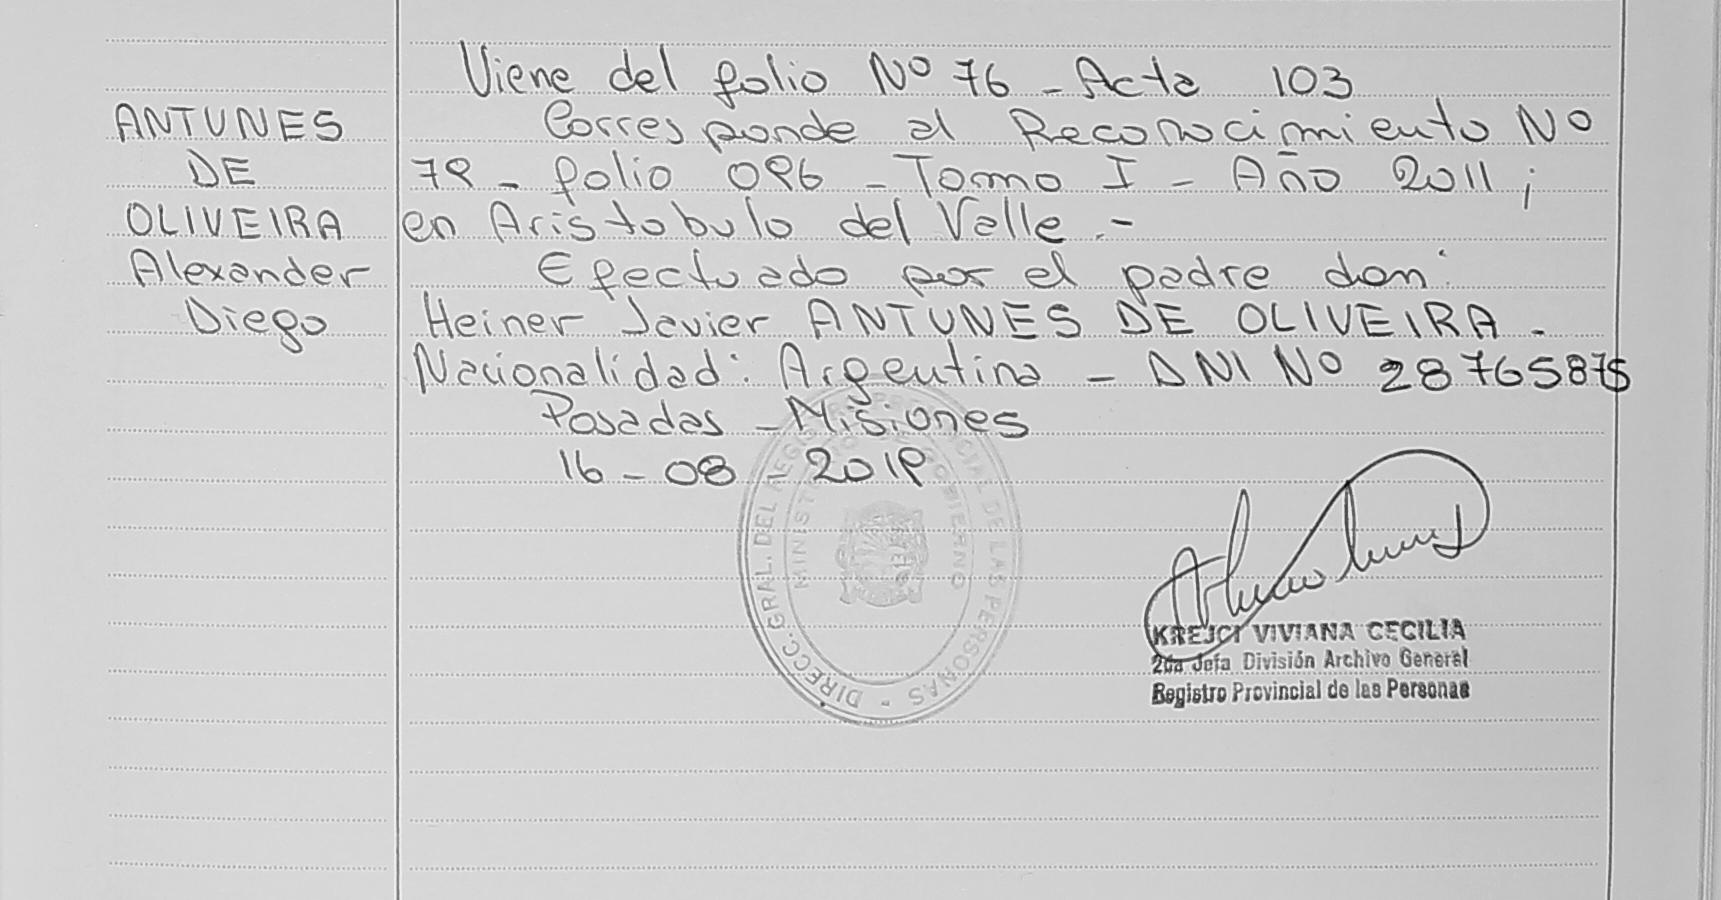 Viene del folio Nº 76 - Acta 103
ANTUNES
DE
OLIVEIRA
Alexander
Diego
Corresponde al Reconocimiento Nº
79 - folio 096 - Tomo I - Año 2011;
en Aristobulo del Valle.-
Efectuado por el padre don:
Heiner Javier ANTUNES DE OLIVEIRA.
Nacionalidad: Argentina - DNI Nº 28765875
Posadas - Misiones
16-08-2019
DIRECC. GRAL. DEL REGISTRO PROVINCIAL DE LAS PERSONAS -
MINISTERIO DE GOBIERNO
KREJCI VIVIANA CECILIA
2da Jefa División Archivo General
Registro Provincial de las Personas